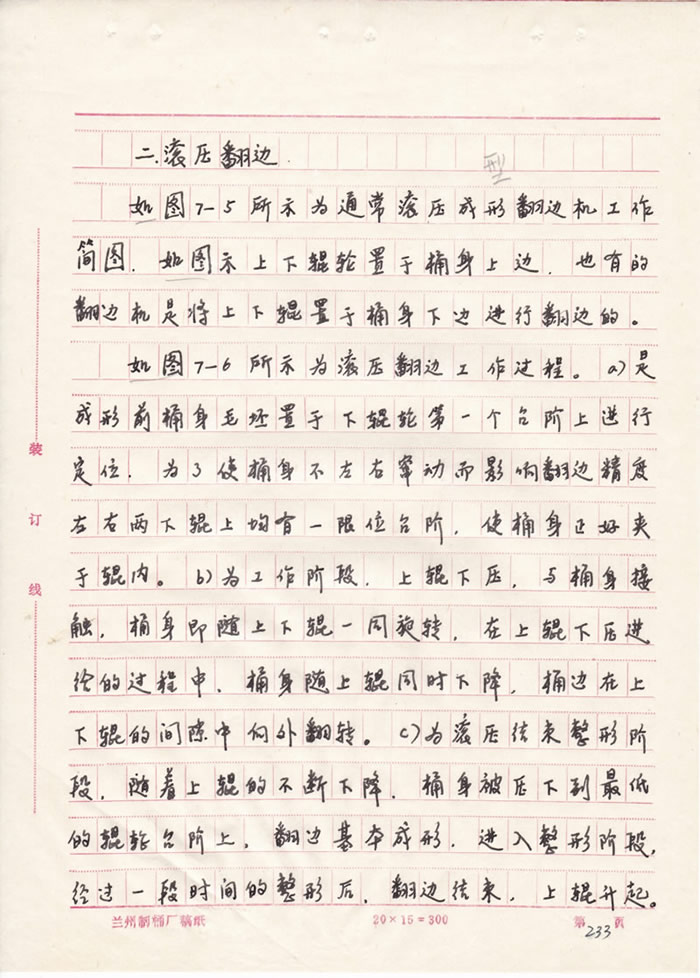 二.滚压翻边
型
如图7-5所示为通常滚压成形翻边机工作
简图.如图示上下辊轮置于桶身上边.也有的
翻边机是将上下辊置于桶身下边进行翻边的。
如图7-6所示为滚压翻边工作过程。a)是
成形前桶身毛坯置于下辊轮第一个台阶上进行
定位.为了使桶身不左右窜动而影响翻边精度
左右两下辊上均有一限位台阶,使桶身正好夹
于辊内。b)为工作阶段.上辊下压,与桶身接
触,桶身即随上下辊一同旋转,在上辊下压进
给的过程中.桶身随上辊同时下降,桶边在上
下辊的间隙中向外翻转。c)为滚压结束整形阶
段,随着上辊的不断下降.桶身被压下到最低
的辊轮台阶上,翻边基本成形.进入整形阶段,
经过一段时间的整形后.翻边结束,上辊升起。
装订线
兰州制桶厂稿纸 20×15=300 第233页